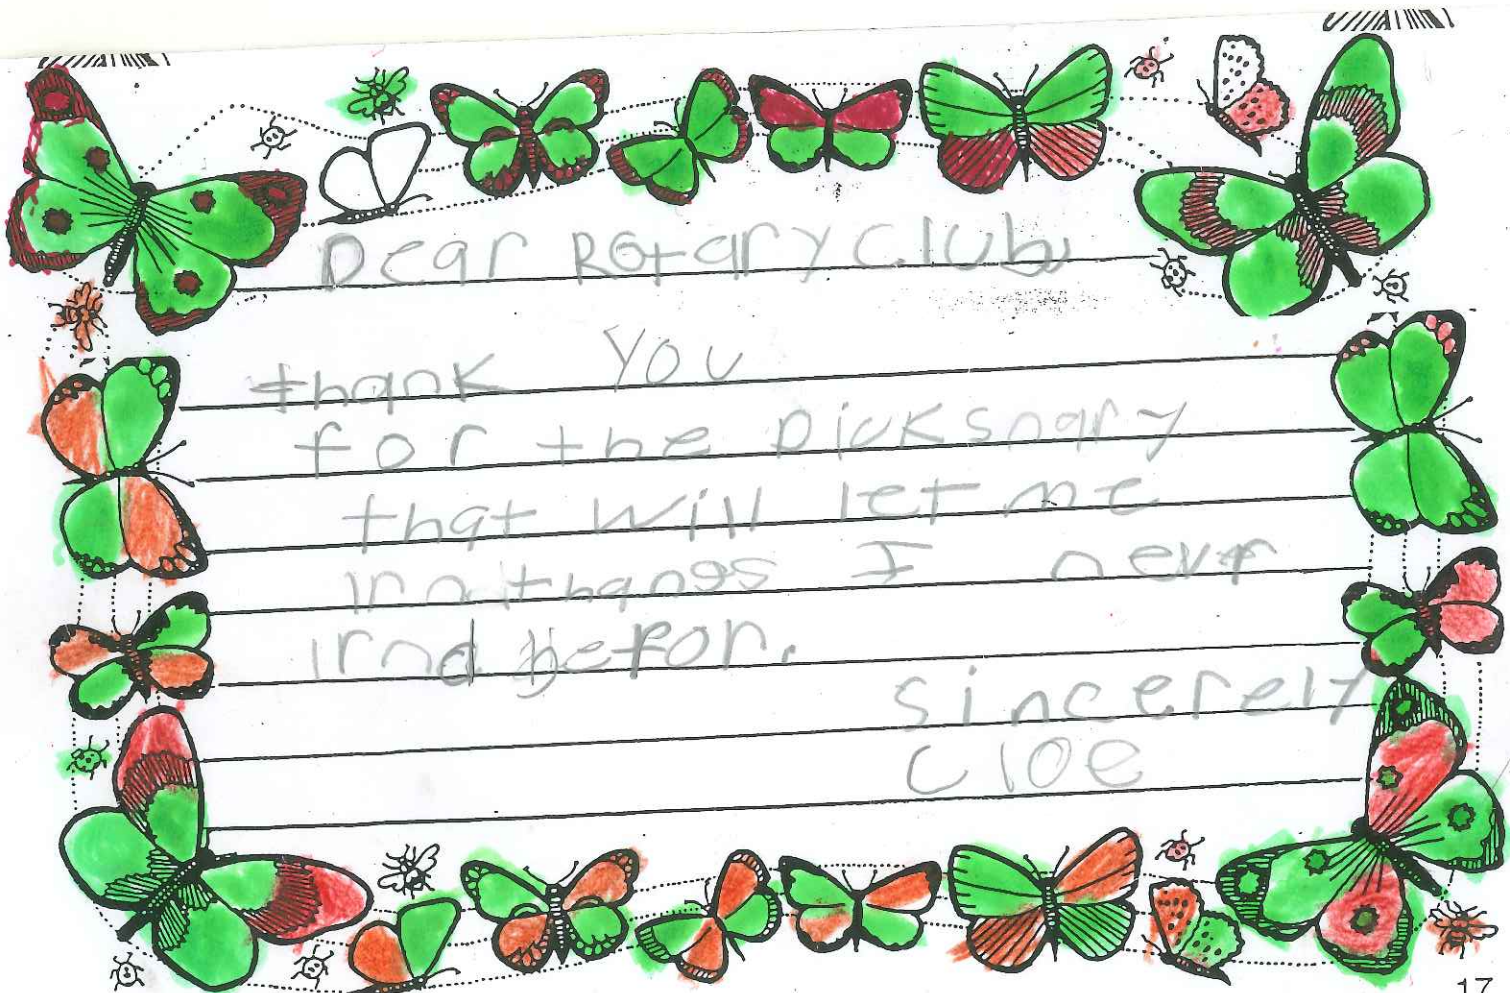 Dear Rotary Club,
thank you
for the Dicksnary
that will let me
lrn thangs I never
lrnd befor.
Sincerely
Cloe
17